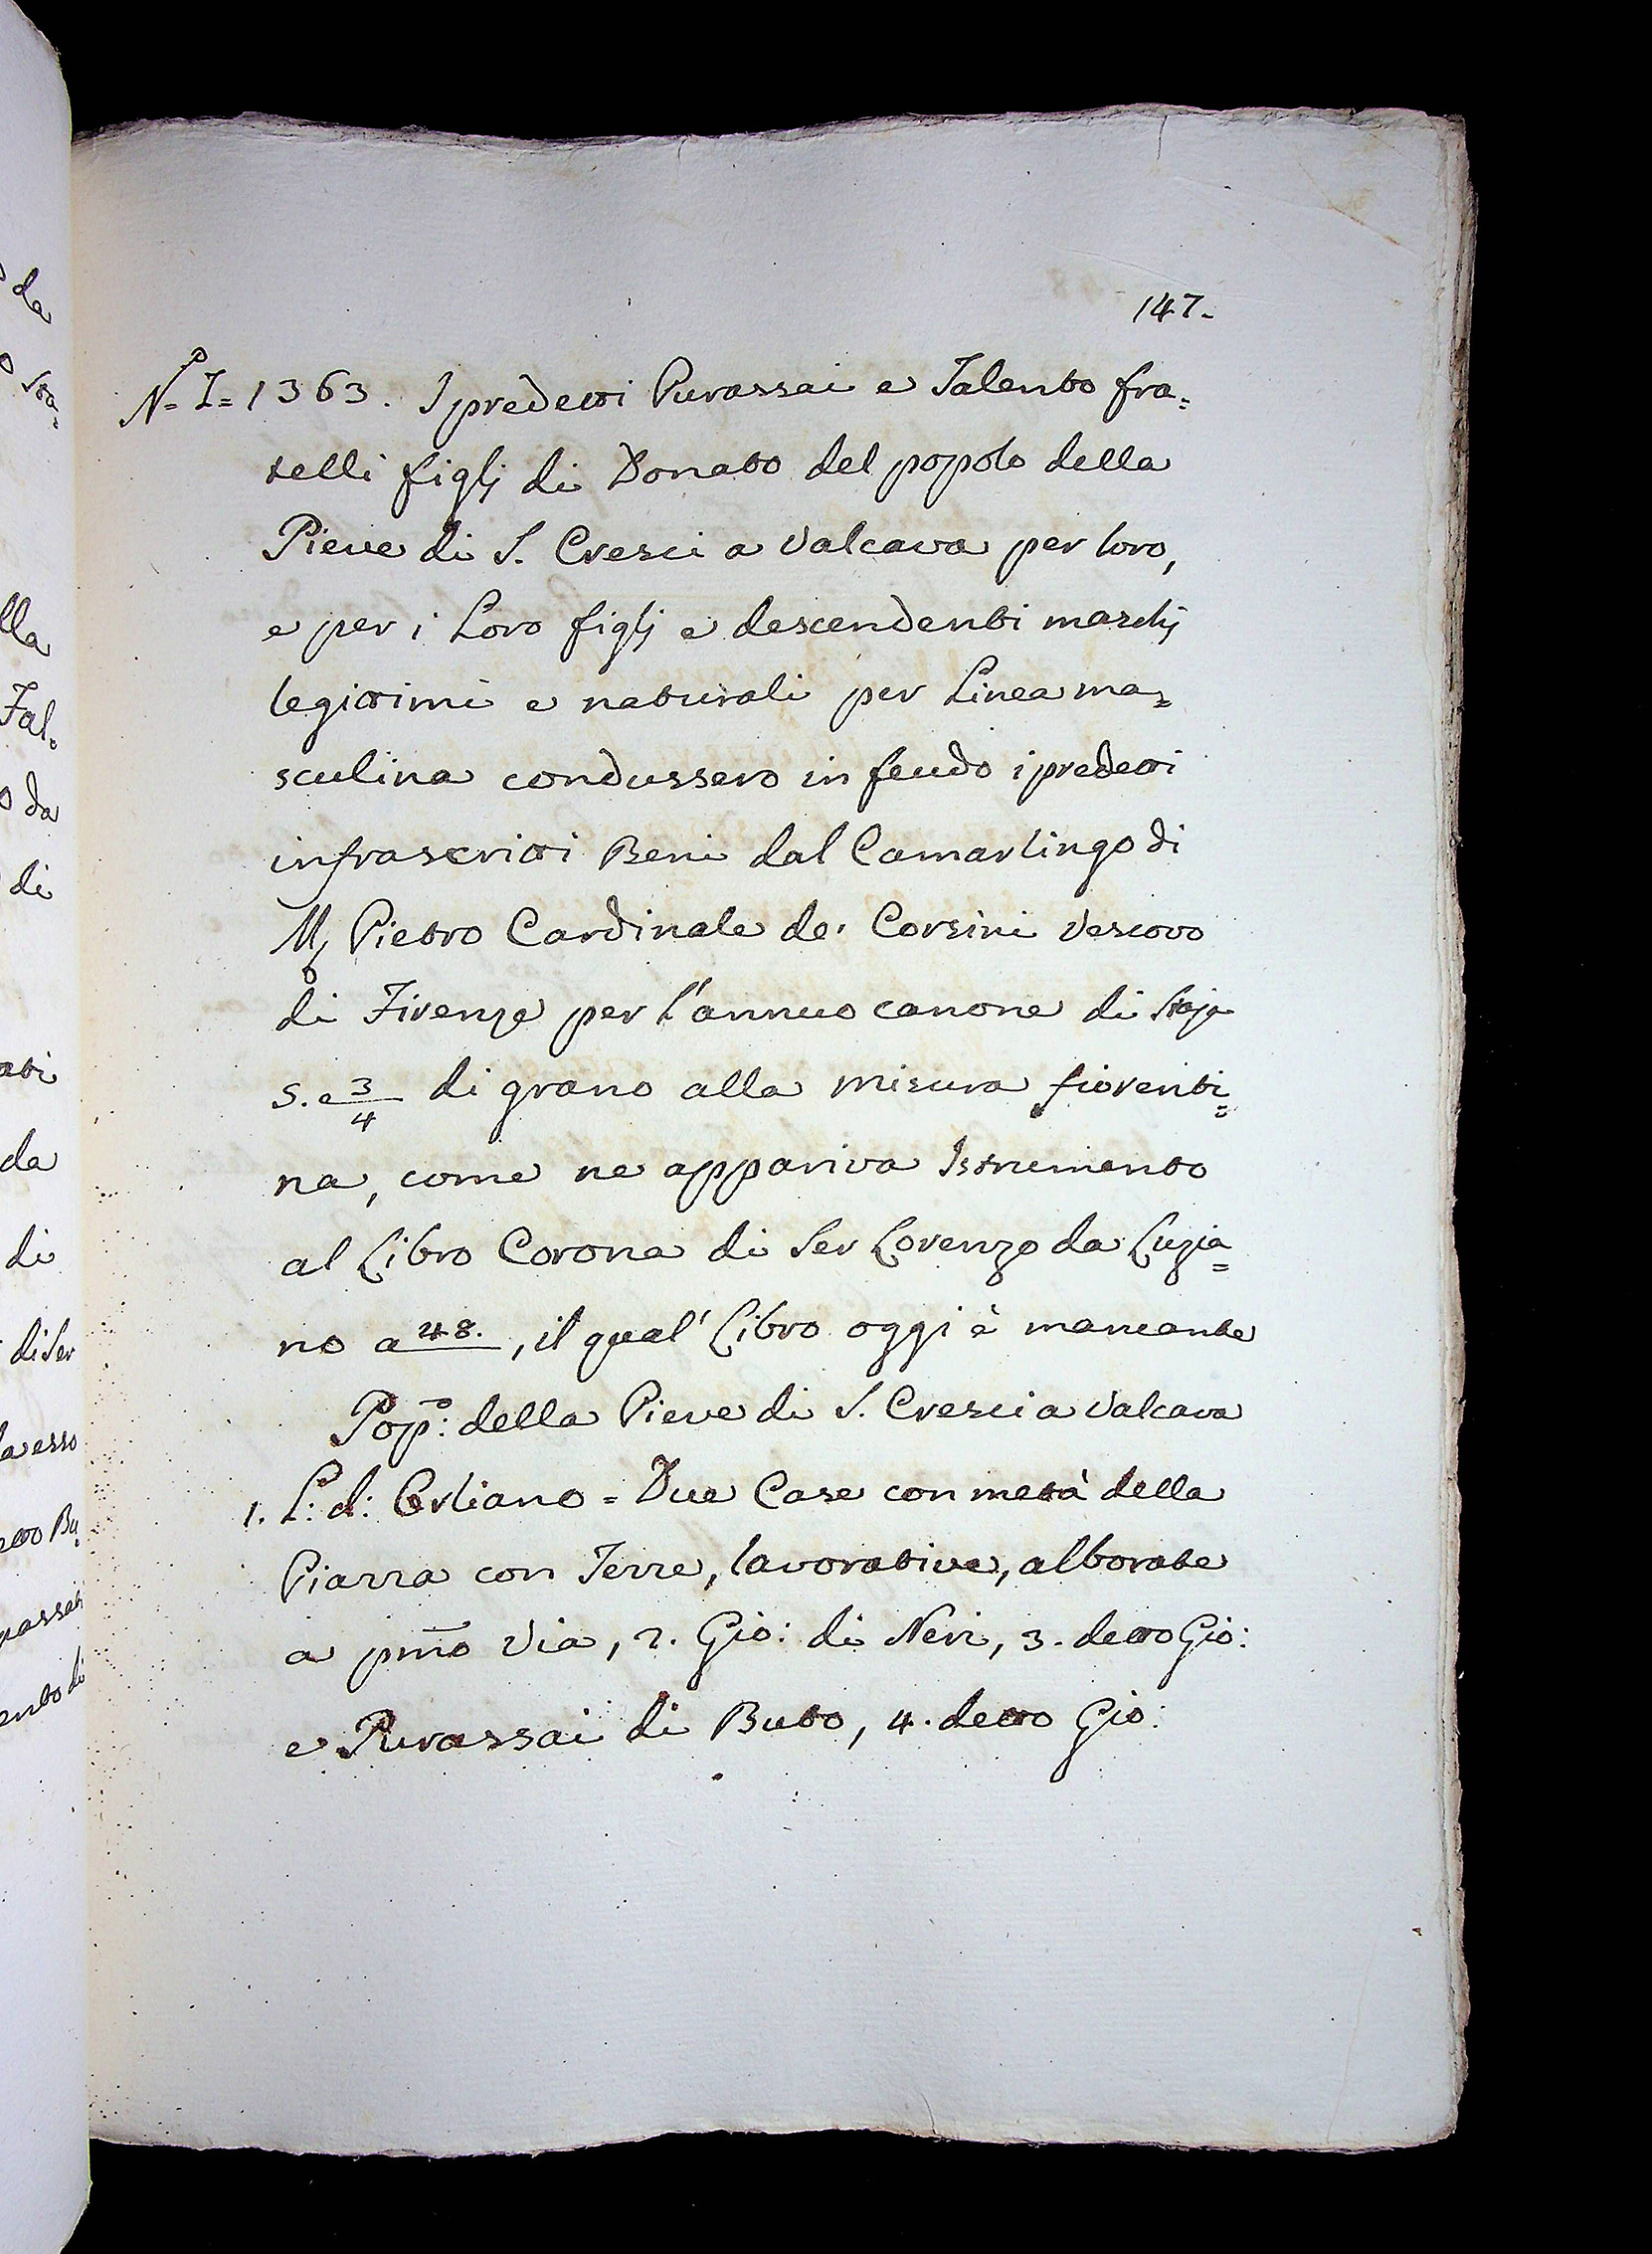 147.
N.º I = 1363. I predetti Purassai e Talento fra=
telli figlj di Donato del popolo della
Pieve di S. Cresci a Valcava per loro,
e per i Loro figlj e descendenti maschj
legittimi e naturali per Linea ma=
sculina condussero in feudo i predetti
infrascritti Beni dal Camarlingo di
Mʃ Pietro Cardinale de' Corsini Vescovo
di Firenze per l'annuo canone di Staja
5. e 3/4 di grano alla misura fiorenti=
na, come ne appariva Istrumento
al Libro Corona di Ser Lorenzo da Luzia=
no a 48. , il qual' Libro oggi è mancante
Pop.º: della Pieve di S. Cresci a Valcava
1. L: d: Cerliano = Due Case con metà della
Piazza con Terre, lavorative, alborate
a pmõ Via, 2. Gio: di Neri, 3. detto Gio:
e Purassai di Buto, 4. detto Gio:
de
lla
Tal=
o da
di
da
di
di Ser
la esso
etto Bu=
passati
ento di